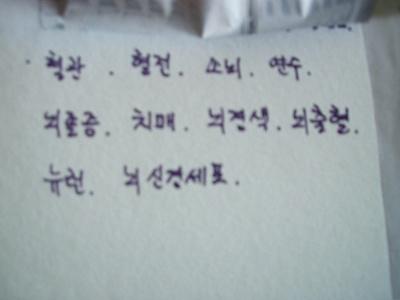 · 혈관 . 혈전 . 소뇌 . 연수 .
뇌졸증 . 치매 . 뇌경색 . 뇌출혈 .
뉴런 . 뇌신경세포 .